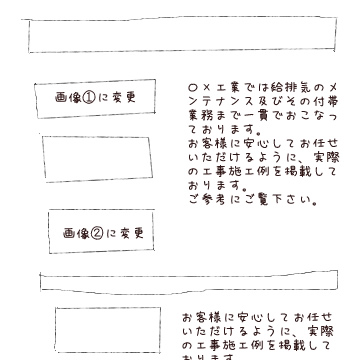 画像①に変更
〇×工業では給排気のメ
ンテナンス及びその付帯
業務まで一貫でおこなっ
ております。
お客様に安心してお任せ
いただけるように、実際
の工事施工例を掲載して
おります。
ご参考にご覧下さい。
画像②に変更
お客様に安心してお任せ
いただけるように、実際
の工事施工例を掲載して
おります